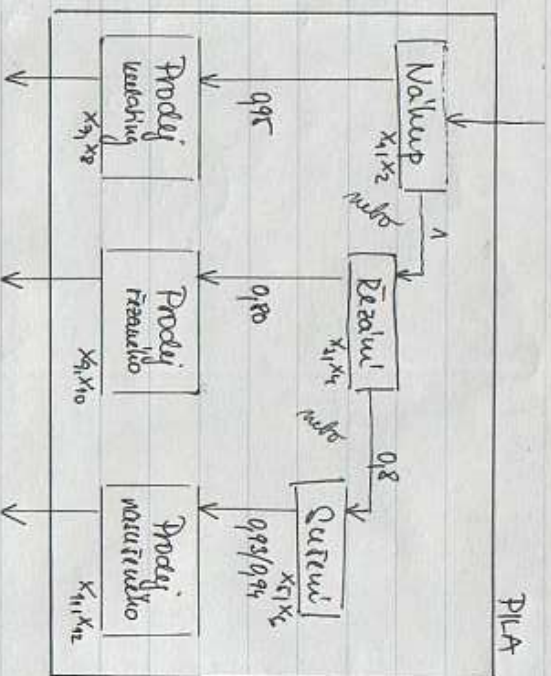 PILA
Nákup
X1, X2
1
nebo
Řezání
X3, X4
0,8
nebo
Sušení
X5, X6
0,95
0,80
0,93/0,94
Prodej
kulatiny
X7, X8
Prodej
řezaného
X9, X10
Prodej
nasušeného
X11, X12